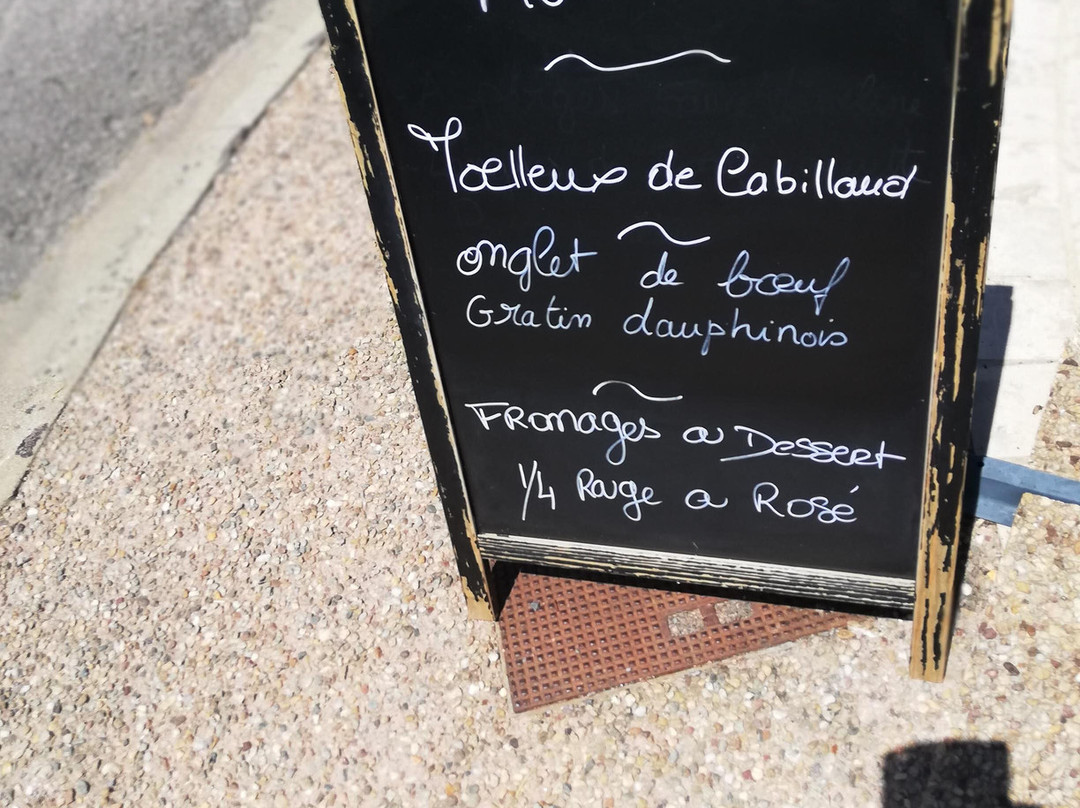 Moelleux de Cabillaud
onglet de bœuf
Gratin dauphinois
Fromages ou Dessert
1/4 Rouge ou Rosé